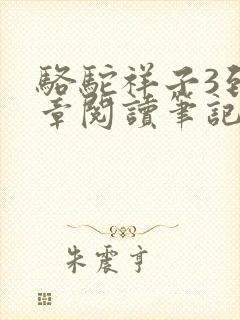 駱駝祥子3到
章閱讀筆記
朱震亨